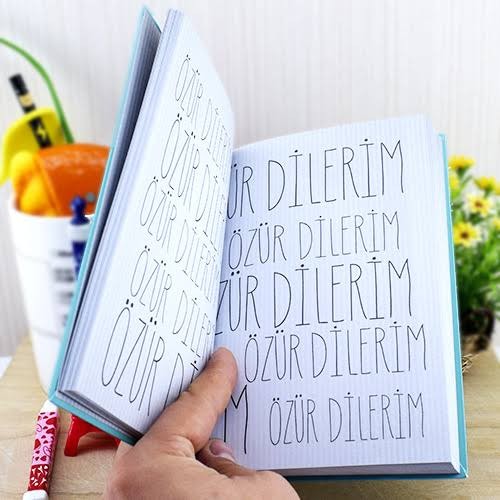 ÖZÜR DİLE
ÖZÜR DİLER
ÖZÜR DİLER
ÖZÜR DİLER
ÖZÜR DİLER
ÜR DİLERİM
ÖZÜR DİLERİM
ÖZÜR DİLERİM
ÖZÜR DİLERİM
M ÖZÜR DİLERİM